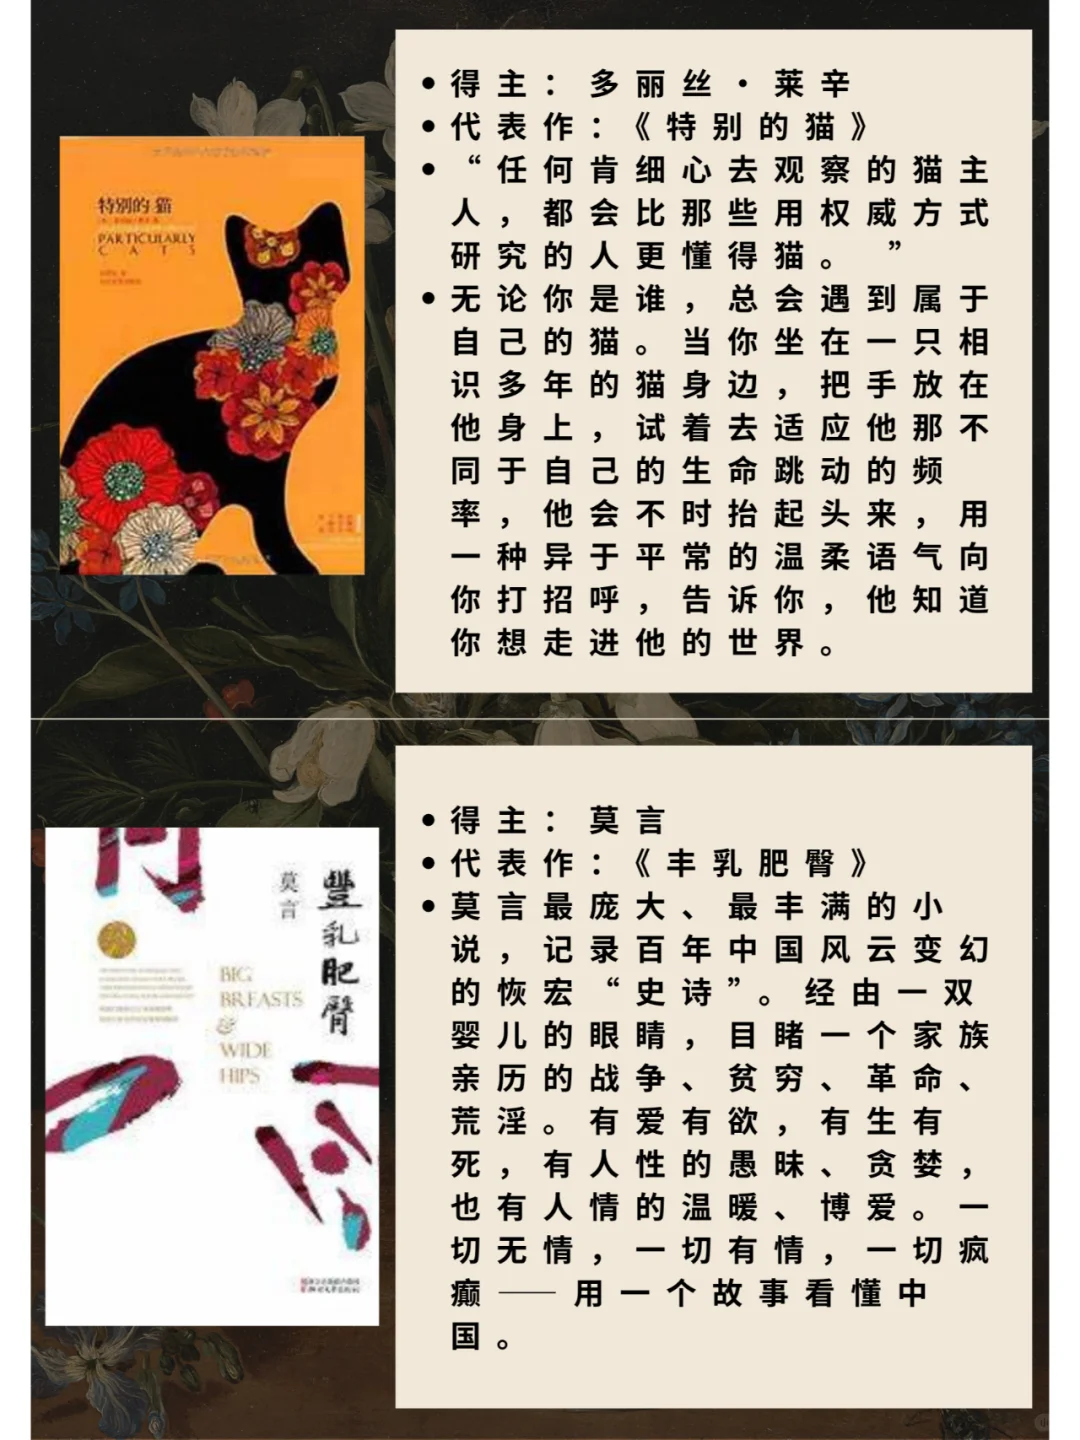 • 得主：多丽丝·莱辛
• 代表作：《特别的猫》
• “任何肯细心去观察的猫主
人，都会比那些用权威方式
研究的人更懂得猫。”
• 无论你是谁，总会遇到属于
自己的猫。当你坐在一只相
识多年的猫身边，把手放在
他身上，试着去适应他那不
同于自己的生命跳动的频
率，他会不时抬起头来，用
一种异于平常的温柔语气向
你打招呼，告诉你，他知道
你想走进他的世界。
特别的猫
PARTICULARLY
CATS
• 得主：莫言
• 代表作：《丰乳肥臀》
• 莫言最庞大、最丰满的小
说，记录百年中国风云变幻
的恢宏“史诗”。经由一双
婴儿的眼睛，目睹一个家族
亲历的战争、贫穷、革命、
荒淫。有爱有欲，有生有
死，有人性的愚昧、贪婪，
也有人情的温暖、博爱。一
切无情，一切有情，一切疯
癫——用一个故事看懂中
国。
豐乳肥臀
莫言
BIG
BREASTS
&
WIDE
HIPS